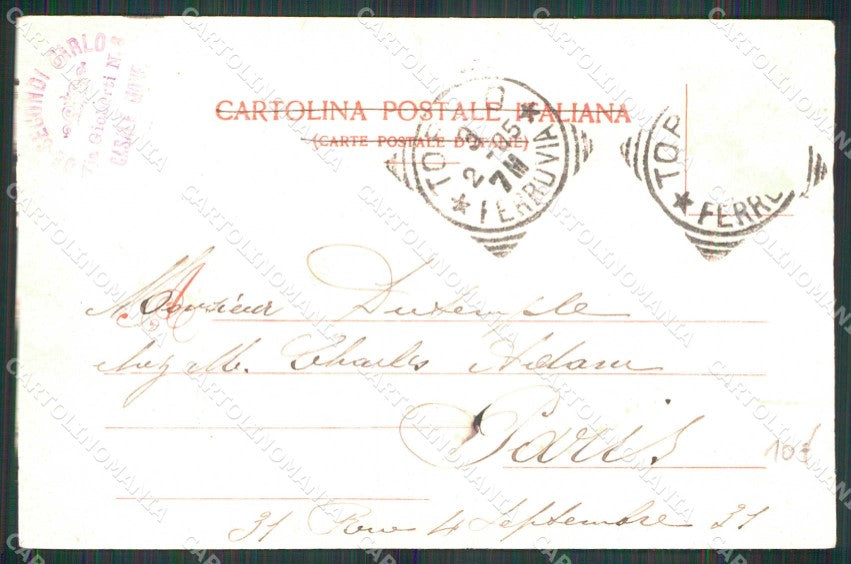 CARTOLINA POSTALE ITALIANA
(CARTE POSTALE D'ITALIE)
CARLO
Via Gioberti N. 8
TOR O
2 9 05
7 M
★ FERROVIA ★
TOR
★ FERRO
Monsieur Dutemple
chez M. Charles Adam
Paris
31 Rue 4 Septembre 31
10
CARTOLINOMANIA